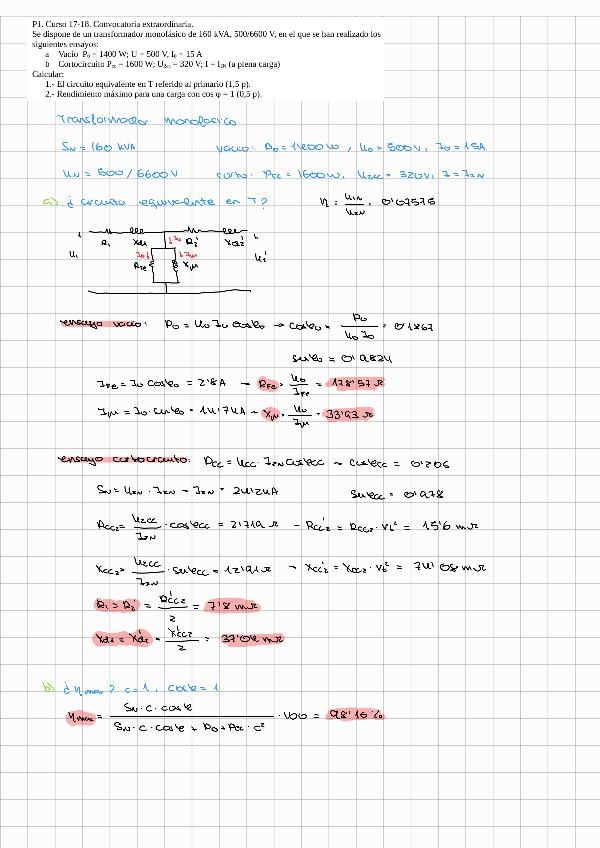 P1. Curso 17-18. Convocatoria extraordinaria.
Se dispone de un transformador monofásico de 160 kVA, 500/6600 V, en el que se han realizado los
siguientes ensayos:
a Vacío P₀ = 1400 W; U = 500 V, I₀ = 15 A
b Cortocircuito Pcc = 1600 W; U2cc = 320 V; I = I2N (a plena carga)
Calcular:
1.- El circuito equivalente en T referido al primario (1,5 p).
2.- Rendimiento máximo para una carga con cos φ = 1 (0,5 p).
Transformador monofásico
SN = 160 kVA vacío: P0 = 1400 W, U0 = 500V, I0 = 15A
UN = 500/6600V corto: Pcc = 1600W, U2cc = 320V, I = I2N
a) ¿ circuito equivalente en T? rt = U1N/U2N = 0'07576
R1 Xd1 I0 R2' Xd2'
U1 IFe Iμ U2'
RFe Xμ
ensayo vacío: P0 = U0 I0 cosφ0 → cosφ0 = P0/(U0 I0) = 0'1867
senφ0 = 0'9824
IFe = I0 cosφ0 = 2'8A → RFe = U0/IFe = 178'57 Ω
Iμ = I0·senφ0 = 14'74A → Xμ = U0/Iμ = 33'93 Ω
ensayo cortocircuito: Pcc = Ucc · I2N cosφcc → cosφcc = 0'206
SN = U2N · I2N → I2N = 24'24A senφcc = 0'978
Rcc2 = U2cc/I2N · cosφcc = 2'719 Ω → Rcc2' = Rcc2 · rt² = 15'6 mΩ
Xcc2 = U2cc/I2N · senφcc = 12'91 Ω → Xcc2' = Xcc2 · rt² = 74'08 mΩ
R1 = R2' = Rcc2'/2 = 7'8 mΩ
Xd1 = Xd2' = Xcc2'/2 = 37'04 mΩ
b) ¿ ηmax ? c = 1, cosφ = 1
ηmax = SN · c · cosφ / (SN · c · cosφ + P0 + Pcc · c²) · 100 = 98'16 %